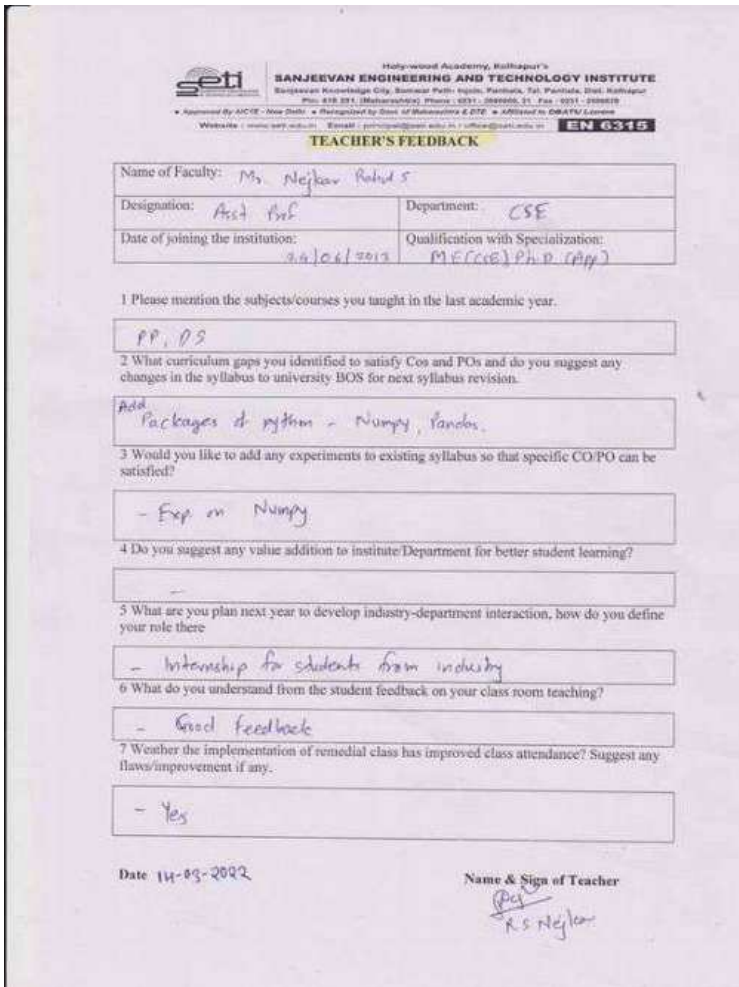 seti
Holy-wood Academy, Kolhapur's
SANJEEVAN ENGINEERING AND TECHNOLOGY INSTITUTE
Sanjeevan Knowledge City, Somwar Peth- Injole, Panhala, Tal. Panhala, Dist. Kolhapur
Pin: 416 201, (Maharashtra)
• Approved By AICTE - New Delhi • Recognized by Govt. of Maharashtra & DTE • Affiliated to DBATU Lonere
Website : www.seti.edu.in Email : principal@seti.edu.in / office@seti.edu.in EN 6315
TEACHER'S FEEDBACK
Name of Faculty: Mr. Nejkar Rahul S
Designation: Asst Prof Department: CSE
Date of joining the institution: Qualification with Specialization:
24/06/2013 M E (CSE) Ph.D. (App)
1 Please mention the subjects/courses you taught in the last academic year.
PP, DS
2 What curriculum gaps you identified to satisfy Cos and POs and do you suggest any
changes in the syllabus to university BOS for next syllabus revision.
Add
Packages of python - Numpy, Pandas.
3 Would you like to add any experiments to existing syllabus so that specific CO/PO can be
satisfied?
- Exp. on Numpy
4 Do you suggest any value addition to institute/Department for better student learning?
-
5 What are you plan next year to develop industry-department interaction, how do you define
your role there
- Internship for students from industry
6 What do you understand from the student feedback on your class room teaching?
- Good feedback
7 Weather the implementation of remedial class has improved class attendance? Suggest any
flaws/improvement if any.
- Yes
Date 14-03-2022
Name & Sign of Teacher
R S Nejkar